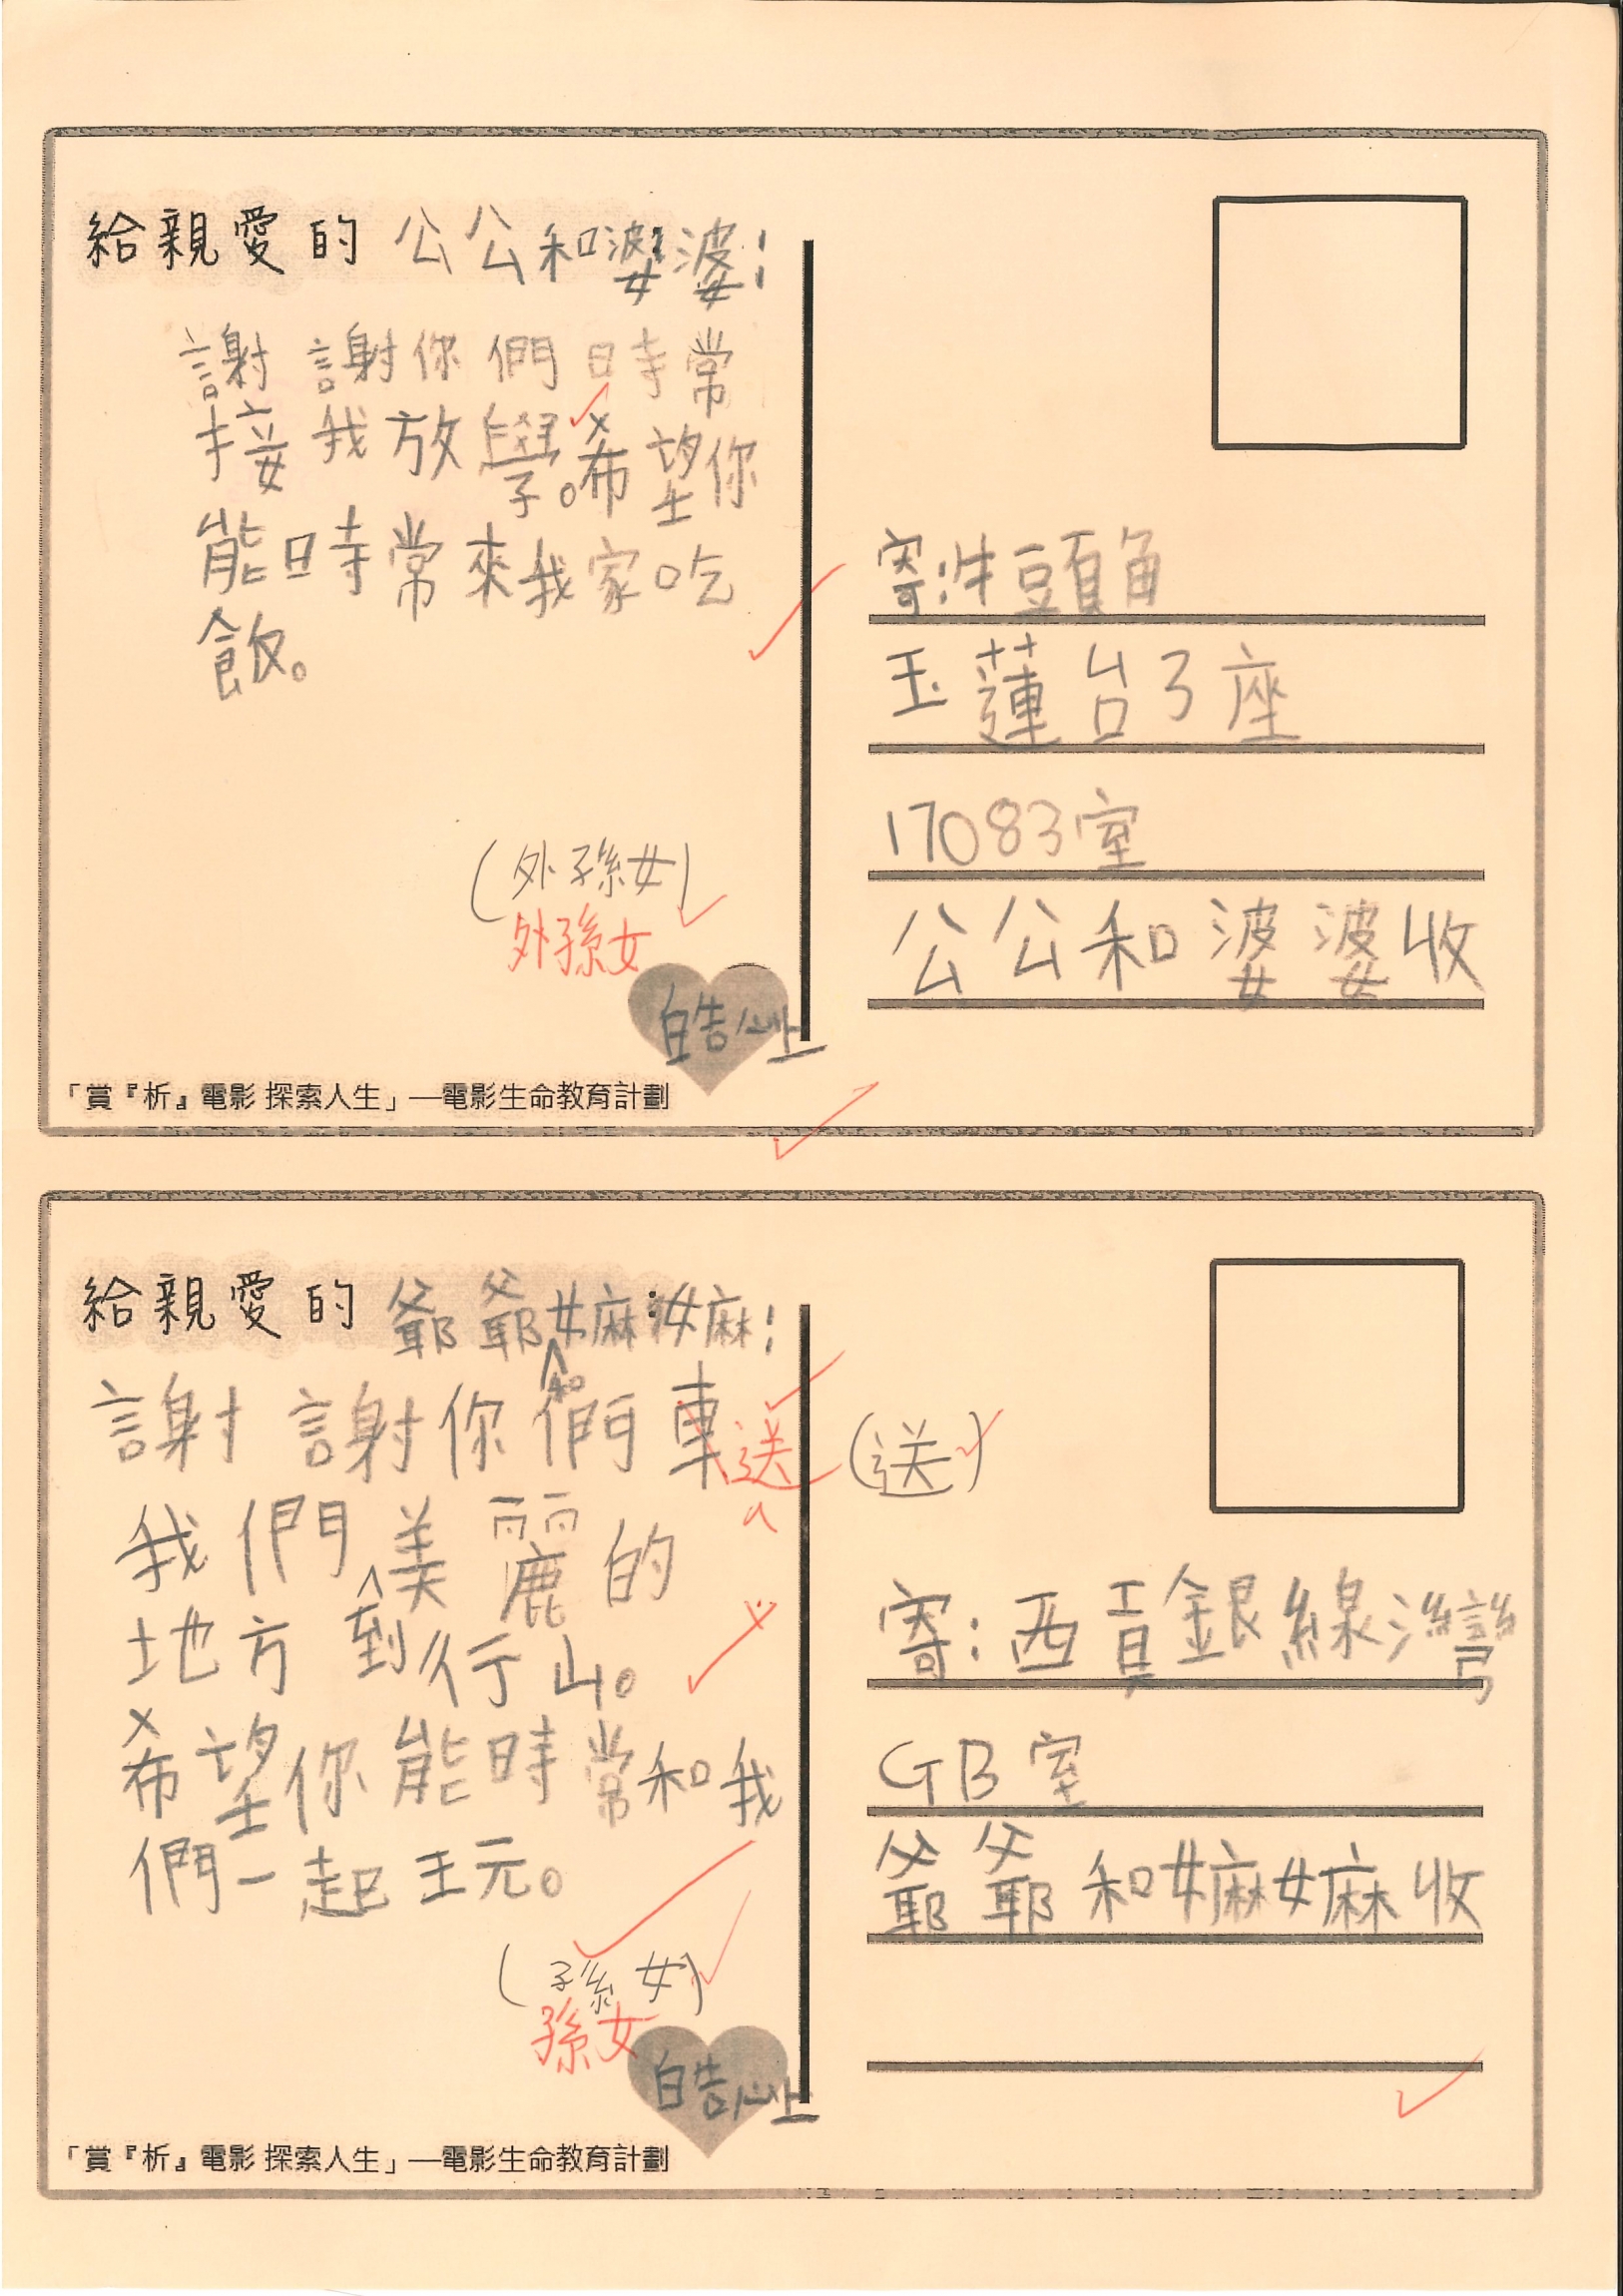 給親愛的公公和婆婆：
謝謝你們時常
接我放學。希望你
能時常來我家吃
飯。
(外孫女)
外孫女
皓
「賞『析』電影 探索人生」—電影生命教育計劃
寄：牛頭角
玉蓮台3座
17083室
公公和婆婆收
給親愛的爺爺和嫲嫲：
謝謝你們車送
(送)
我們到美麗的
地方行山。
希望你能時常和我
們一起玩。
(孫女)
孫女
皓
「賞『析』電影 探索人生」—電影生命教育計劃
寄：西貢銀線灣
GB室
爺爺和嫲嫲收